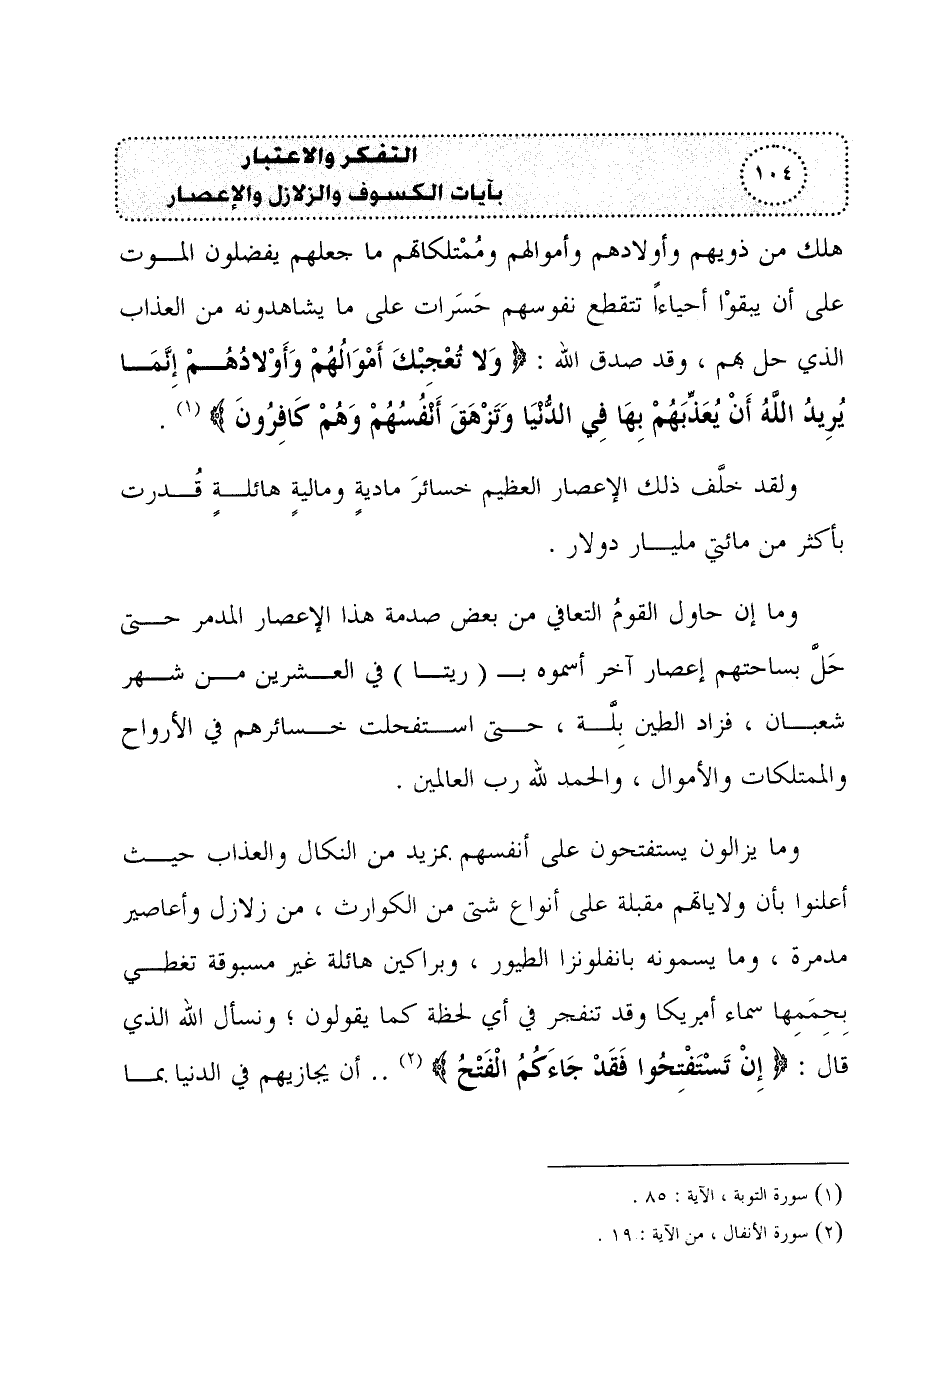 ١٠٤
التفكر والاعتبار
بآيات الكسوف والزلازل والإعصار
هلك من ذويهم وأولادهم وأموالهم ومُمْتلكاتهم ما جعلهم يفضلون الموت
على أن يبقوْا أحياءاً تتقطع نفوسهم حَسَرات على ما يشاهدونه من العذاب
الذي حل بهم ، وقد صدق الله : ﴿ وَلا تُعْجِبْكَ أَمْوَالُهُمْ وَأَوْلادُهُمْ إِنَّمَا
يُرِيدُ اللَّهُ أَنْ يُعَذِّبَهُمْ بِهَا فِي الدُّنْيَا وَتَزْهَقَ أَنْفُسُهُمْ وَهُمْ كَافِرُونَ ﴾ (١) .
ولقد خلَّف ذلك الإعصار العظيم خسائرَ ماديةٍ وماليةٍ هائلةٍ قُدرت
بأكثر من مائتي مليار دولار .
وما إن حاول القومُ التعافي من بعض صدمة هذا الإعصار المدمر حتى
حَلَّ بساحتهم إعصار آخر أسموه بـ ( ريتا ) في العشرين من شهر
شعبان ، فزاد الطين بِلَّة ، حتى استفحلت خسائرهم في الأرواح
والممتلكات والأموال ، والحمد لله رب العالمين .
وما يزالون يستفتحون على أنفسهم بمزيد من النكال والعذاب حيث
أعلنوا بأن ولاياتهم مقبلة على أنواع شتى من الكوارث ، من زلازل وأعاصير
مدمرة ، وما يسمونه بانفلونزا الطيور ، وبراكين هائلة غير مسبوقة تغطي
بِحِمَمِها سماء أمريكا وقد تنفجر في أي لحظة كما يقولون ؛ ونسأل الله الذي
قال : ﴿ إِنْ تَسْتَفْتِحُوا فَقَدْ جَاءَكُمُ الْفَتْحُ ﴾ (٢) .. أن يجازيهم في الدنيا بما
(١) سورة التوبة ، الآية : ٨٥ .
(٢) سورة الأنفال ، من الآية : ١٩ .